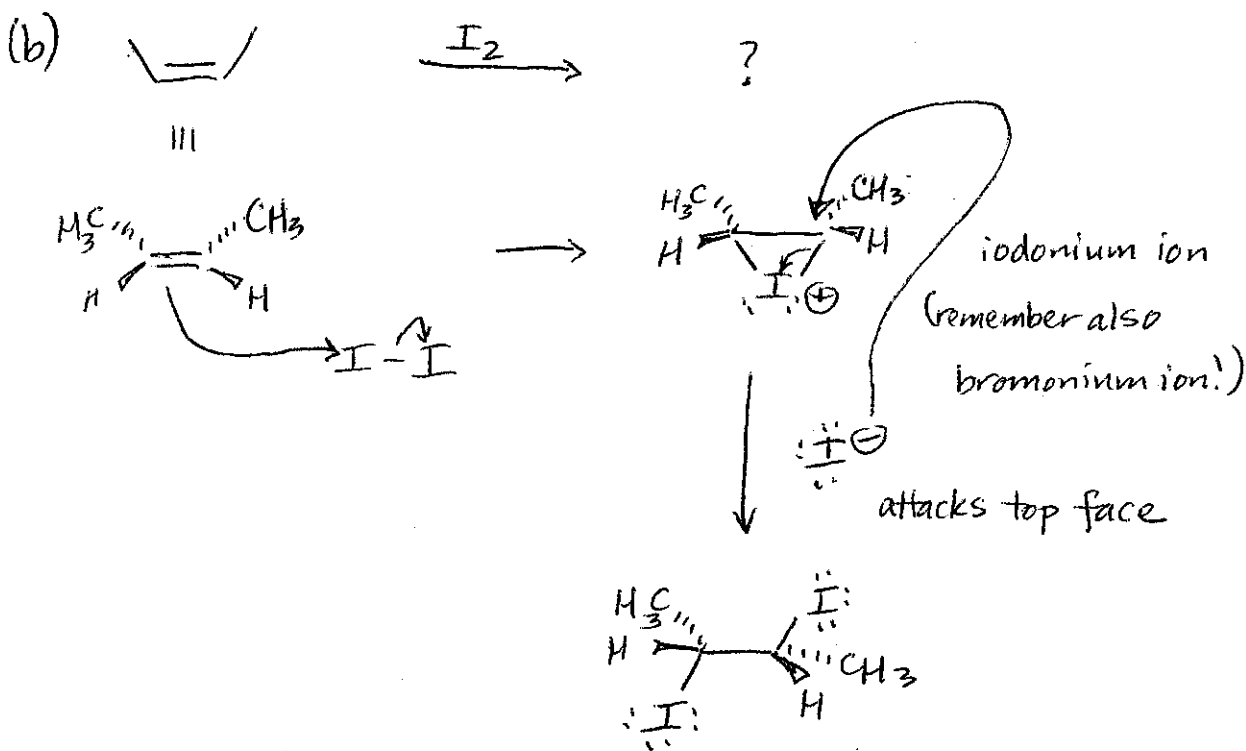 (b)
I₂
?
|||
H₃C
CH₃
H
H
I-I
H₃C
CH₃
H
H
:I: ⊕
iodonium ion
(remember also
bromonium ion!)
:I: ⊖
attacks top face
H₃C
I:
H
CH₃
H
:I: